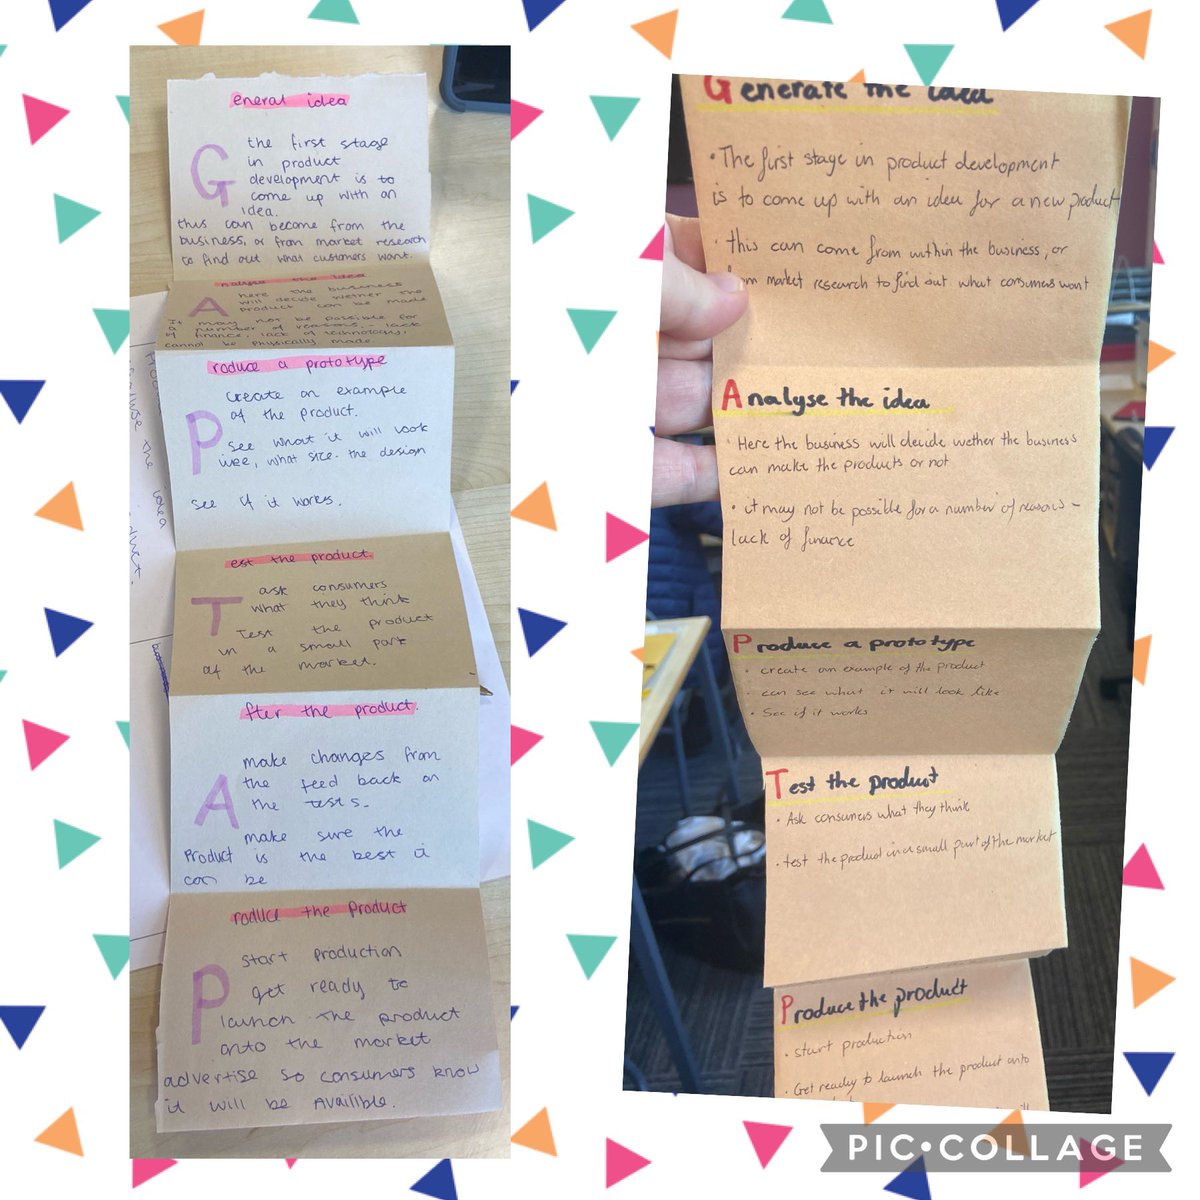 General idea
the first stage
in product
development is to
come up with an
idea.
this can become from the
business, or from market research
to find out what customers want.
Analyse the idea
here the business
will decide wether the
product can be made
It may not be possible for
a number of reasons - lack
of finance, lack of technology,
cannot be physically made
Produce a prototype
Create an example
of the product.
see what it will look
like, what size. the design
see if it works.
Test the product.
ask consumers
what they think
Test the product
in a small part
of the market.
After the product.
make changes from
the feed back on
the tests.
make sure the
Product is the best it
can be
Produce the Product
start production
get ready to
launch the product
onto the market
advertise so consumers know
it will be Availible.
Generate the idea
• The first stage in product development
is to come up with an idea for a new product
• this can come from within the business, or
from market research to find out what consumers want
Analyse the idea
• Here the business will decide wether the business
can make the products or not
• it may not be possible for a number of reasons -
lack of finance
Produce a prototype
• create an example of the product
• can see what it will look like
• See if it works
Test the product
• Ask consumers what they think
• test the product in a small part of the market
Produce the product
• start production
• Get ready to launch the product onto
PIC•COLLAGE